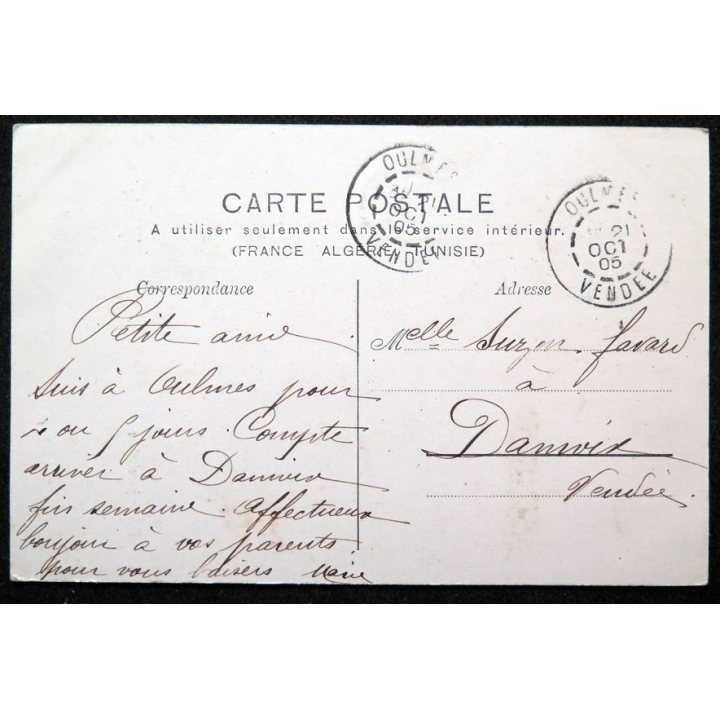 OULMES
OCT
05
VENDEE
OULMES
21
OCT
05
VENDEE
CARTE POSTALE
A utiliser seulement dans le service intérieur.
(FRANCE ALGERIE TUNISIE)
Correspondance
Petite amie
Suis à Oulmes pour
4 ou 5 jours. Compte
arriver à Damvix
fin semaine. Affectueux
bonjour à vos parents,
pour vous baisers Marie
Adresse
Melle Suzon Favard
à
Damvix
Vendée.